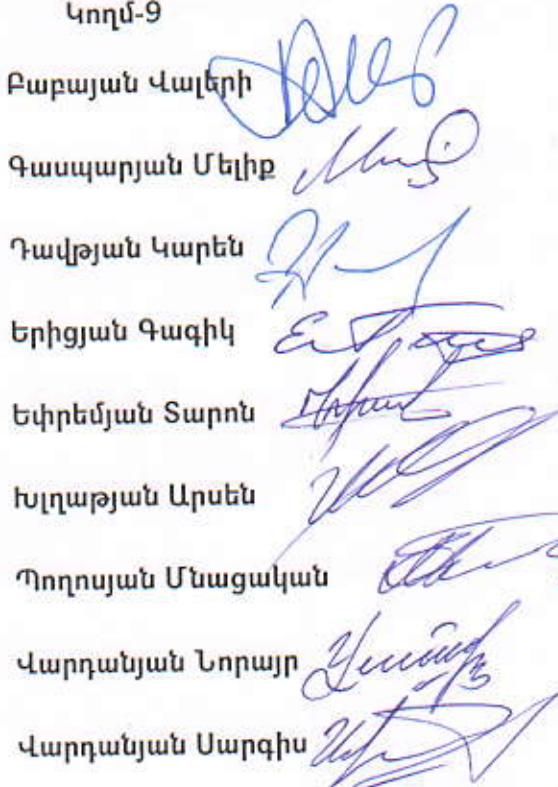 Կողմ-9
Բաբայան Վալերի
Գասպարյան Մելիք
Դավթյան Կարեն
Երիցյան Գագիկ
Եփրեմյան Տարոն
Խլղաթյան Արսեն
Պողոսյան Մնացական
Վարդանյան Նորայր
Վարդանյան Սարգիս